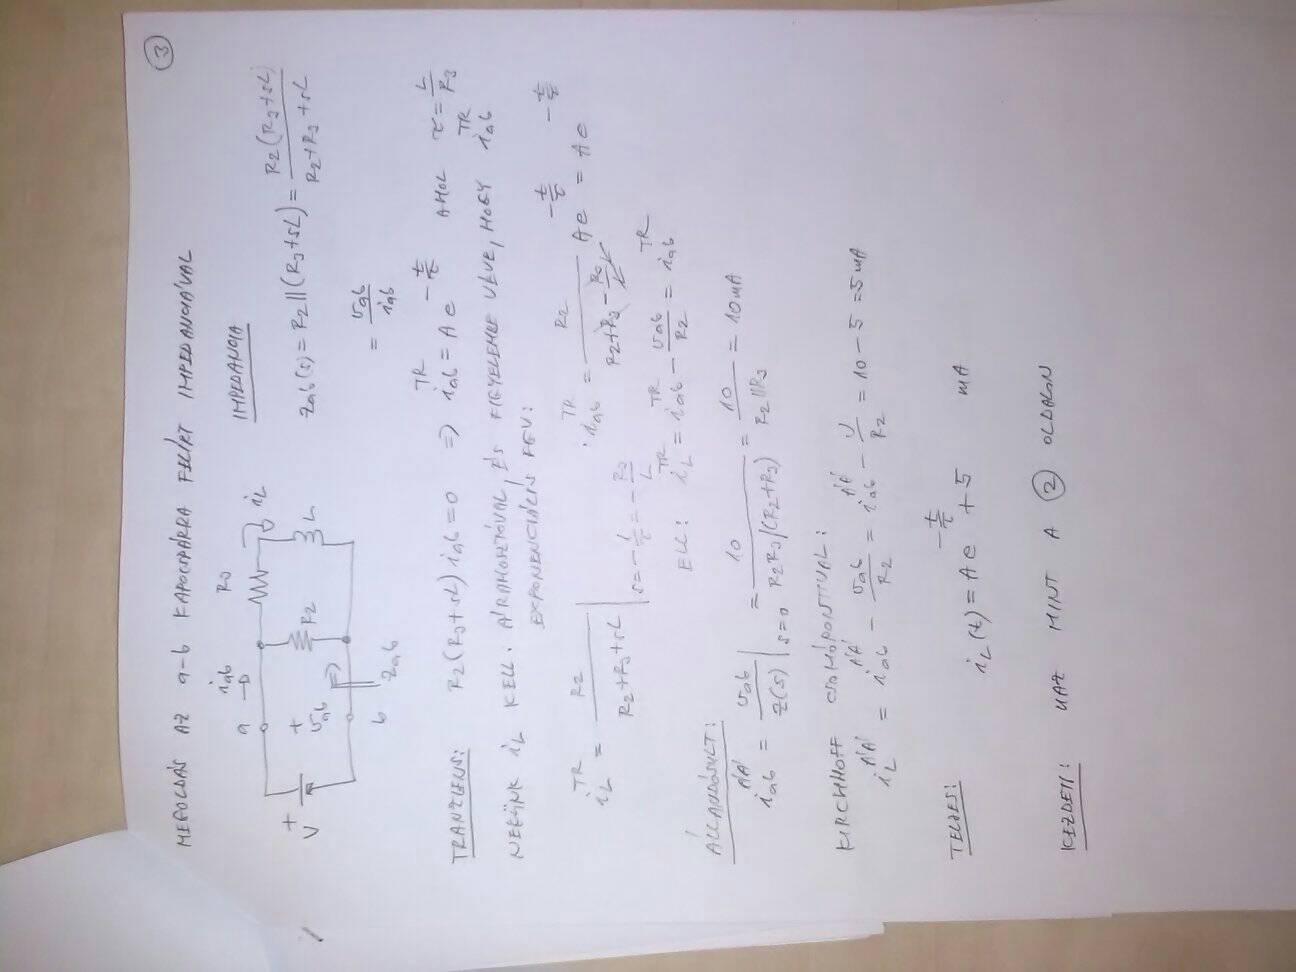 ③
MEGOLDÁS AZ a-b KAPOCSPÁRRA FELÍRT IMPEDANCIÁVAL
a i_ab R3 i_L
V + + v_ab R2 L
b Z_ab
IMPEDANCIA
Z_ab(s) = R2 || (R3+sL) = R2(R3+sL) / (R2+R3+sL)
= v_ab / i_ab
TRANZIENS: R2(R3+sL) i_ab = 0 ⇒ i_ab^TR = A e^(-t/τ) AHOL τ = L/R3
NEKÜNK i_L KELL. ÁRAMOSZTÓVAL, ÉS FIGYELEMBE VÉVE, HOGY i_ab^TR
EXPONENCIÁLIS FGV:
i_L^TR = R2 / (R2+R3+sL) |s=-1/τ=-R3/L · i_ab^TR = R2 / (R2+R3-R3) A e^(-t/τ) = A e^(-t/τ)
ELL: i_L^TR = i_ab^TR - v_ab^TR / R2 = i_ab^TR
ÁLLANDÓSULT:
i_ab^ÁÁ = v_ab / Z(s) |s=0 = 10 / (R2R3/(R2+R3)) = 10 / (R2||R3) = 10 mA
KIRCHHOFF CSOMÓPONTIVAL:
i_L^ÁÁ = i_ab^ÁÁ - v_ab / R2 = i_ab^ÁÁ - U / R2 = 10 - 5 = 5 mA
TELJES: i_L(t) = A e^(-t/τ) + 5 mA
KEZDETI: UAZ MINT A ② OLDALON